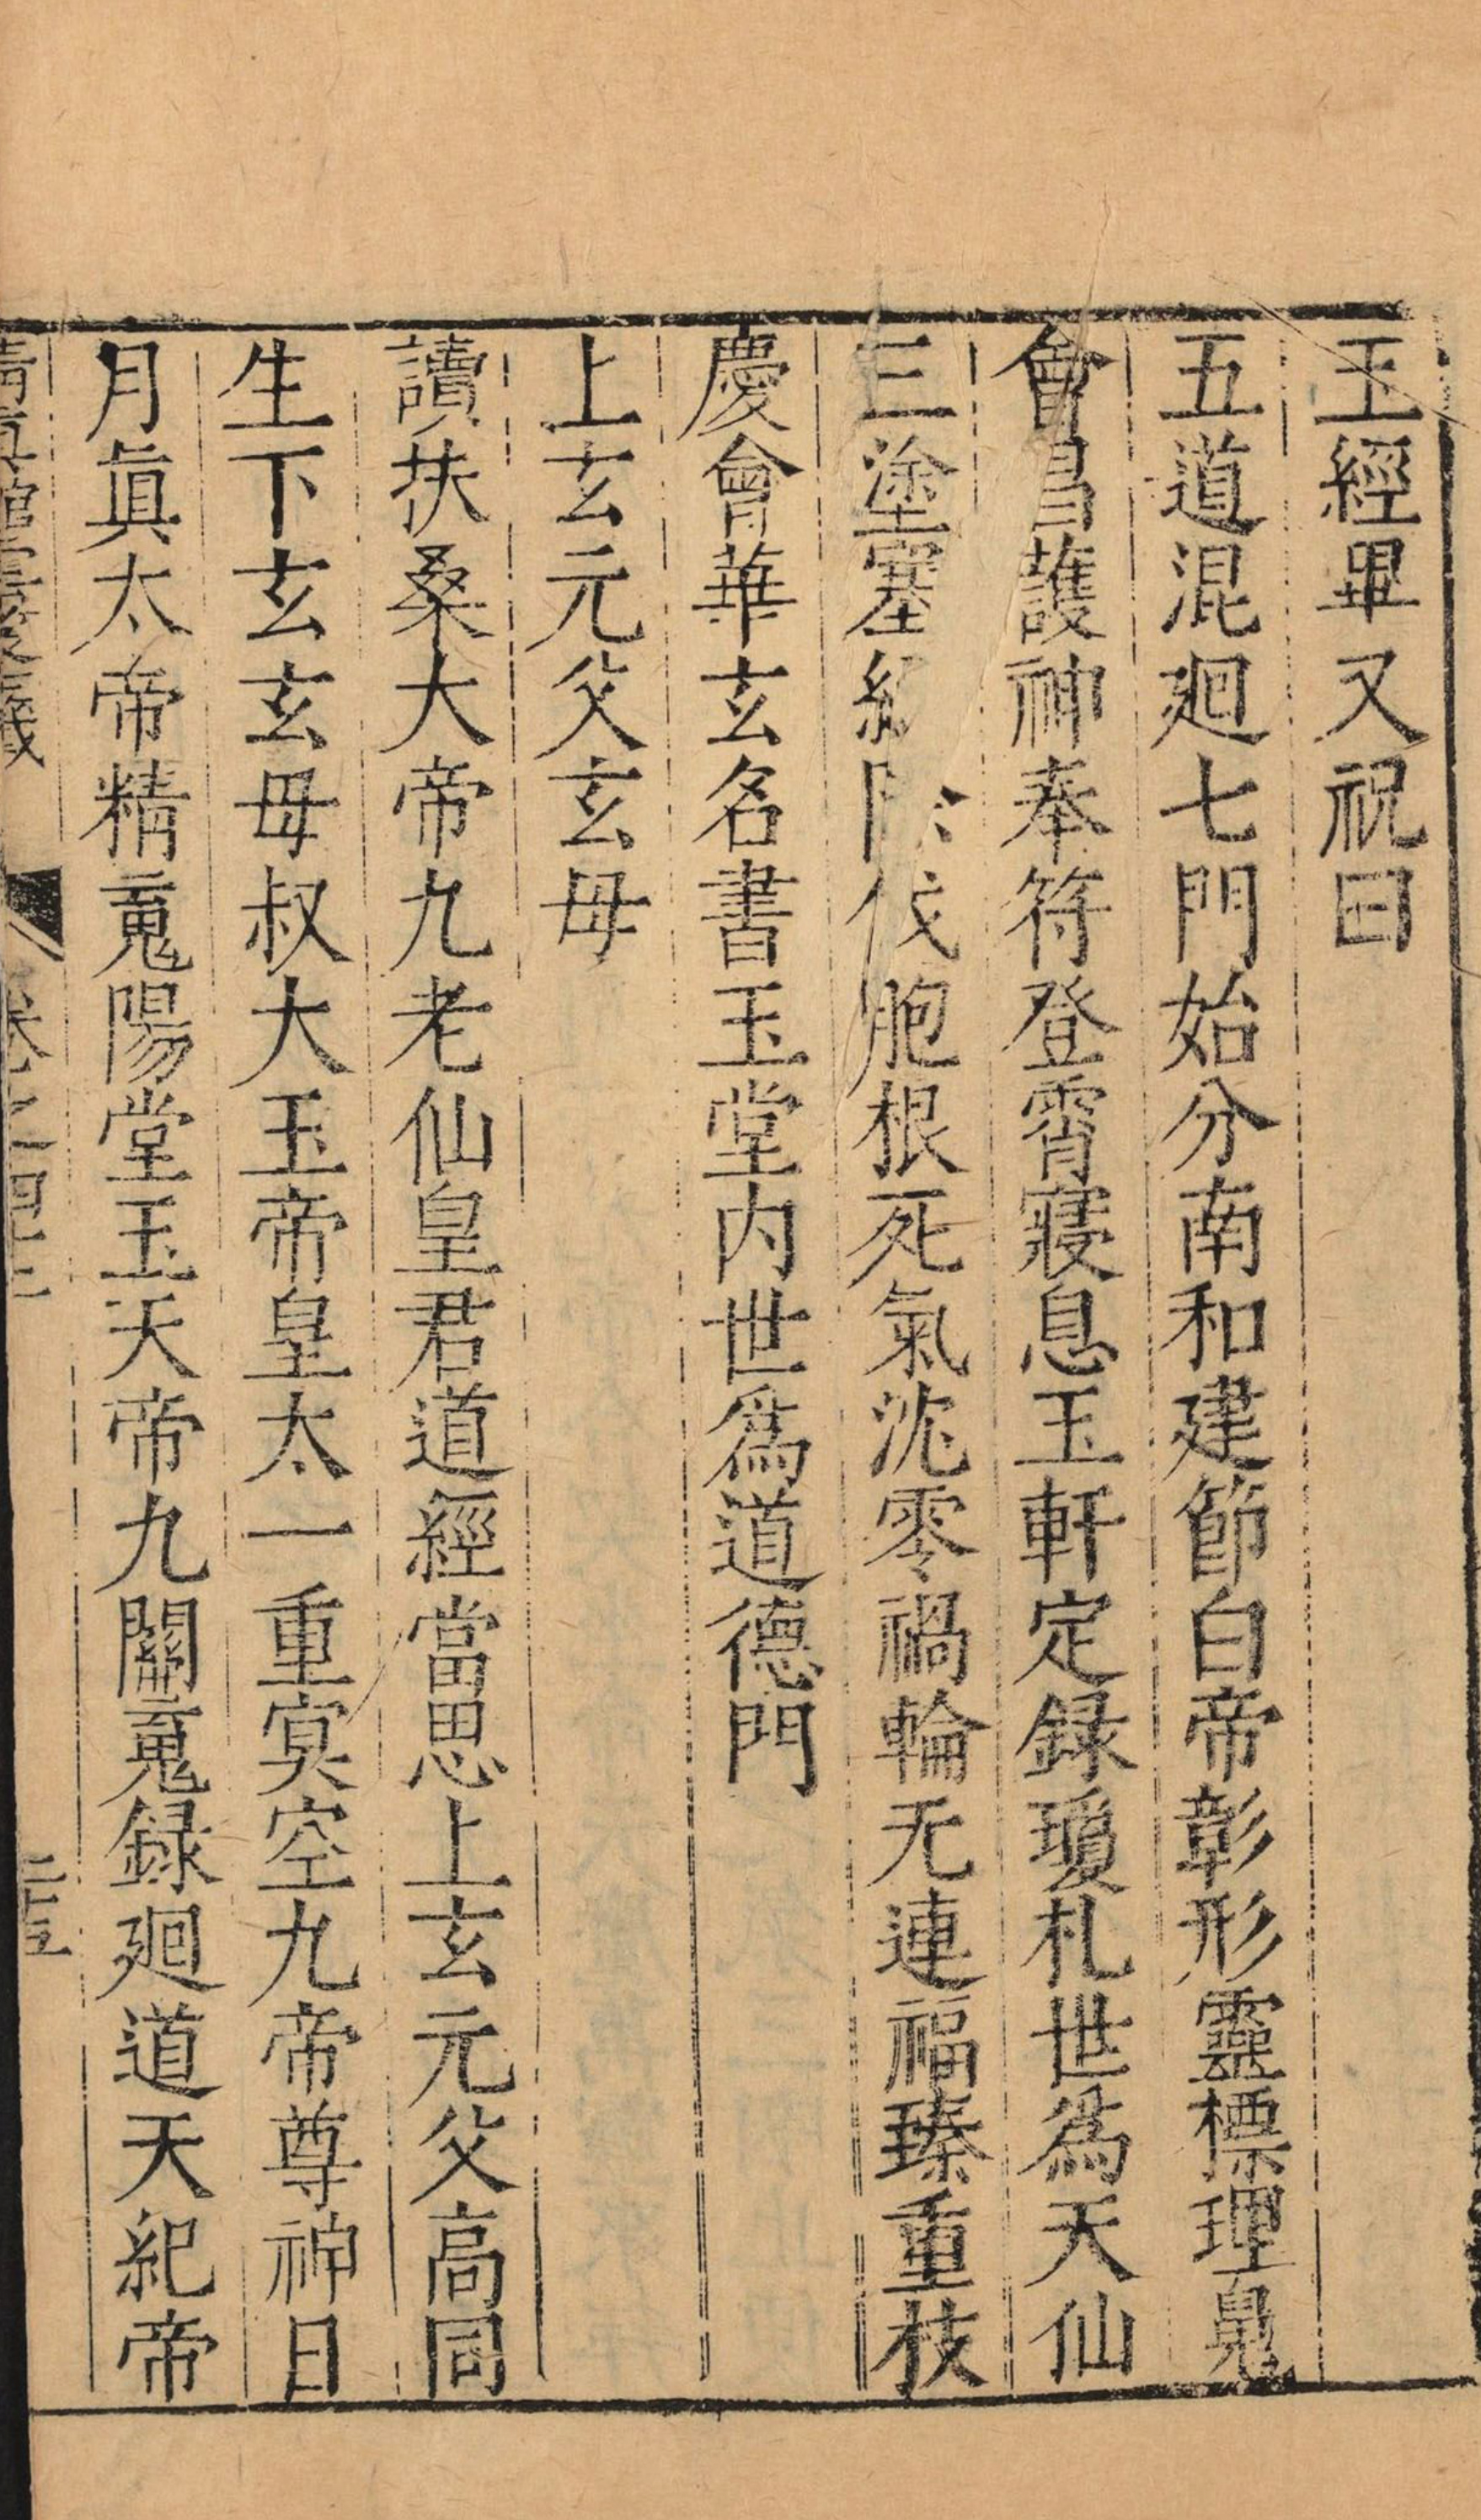 玉經畢又祝曰
五道混廻七門始分南和建節白帝彰形靈標理䰟
會昌護神奉符登霄寢息玉軒定録瓊札世爲天仙
三塗塞伐胞根死氣沈零禍輪无連福臻重枝
慶會華玄名書玉堂内世爲道德門
上玄元父玄母
讀扶桑大帝九老仙皇君道經當思上玄元父高同
生下玄玄母叔大玉帝皇太一重冥空九帝尊神日
月眞太帝精䰟陽堂玉天帝九關䰟録廻道天紀帝
卷之四十二
二十五